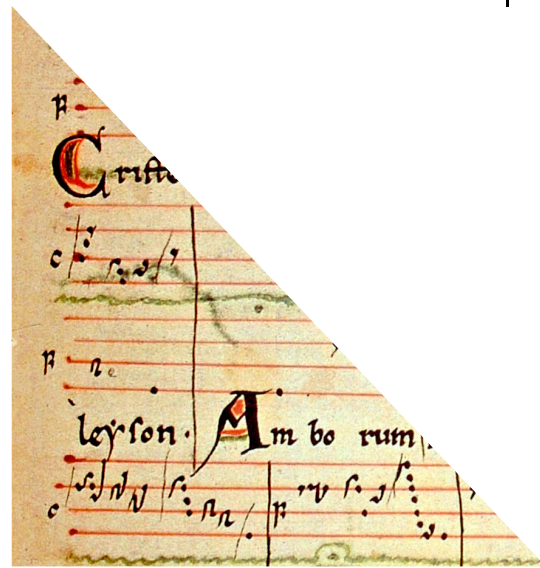 Criste
leyson. Am bo rum